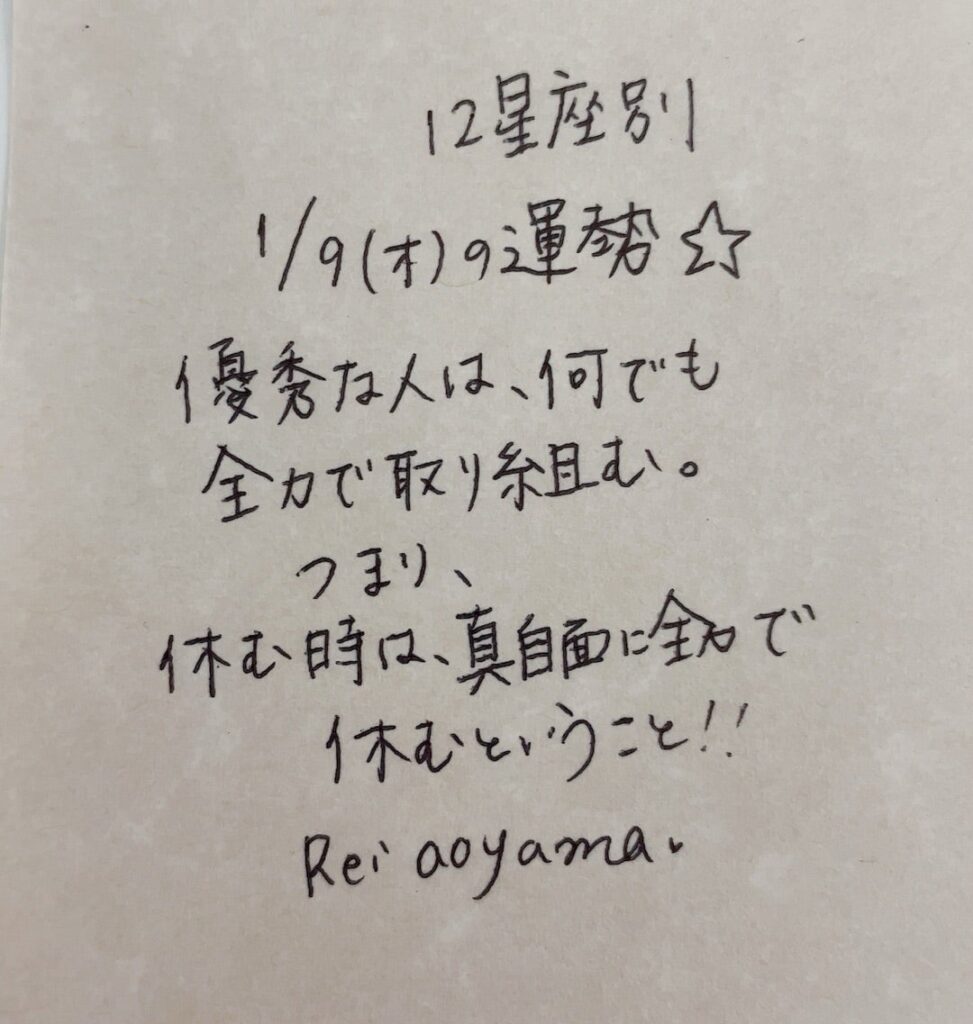 12星座別
1/9(木)の運勢☆
優秀な人は、何でも
全力で取り組む。
つまり、
休む時は、真自面に全力で
休むということ!!
Rei aoyama.